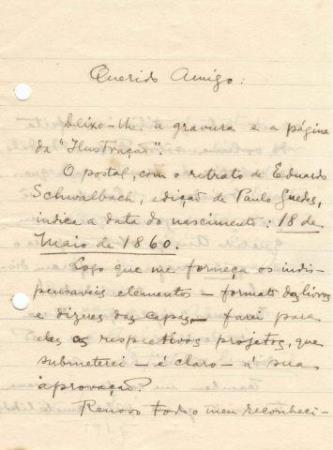 Querido Amigo:
Deixo-lhe a gravura e a página
da "Ilustração".
O postal, com o retrato de Eduardo
Schwalbach, edição de Paulo Guedes,
indica a data do nascimento: 18 de
Maio de 1860.
Logo que me forneça os indis-
pensaveis elementos - formato dos livros
e dizeres das capas, - farei para
eles os respectivos projetos, que
submeterei - é claro - á sua
aprovação.
Renovo todo o meu reconheci-